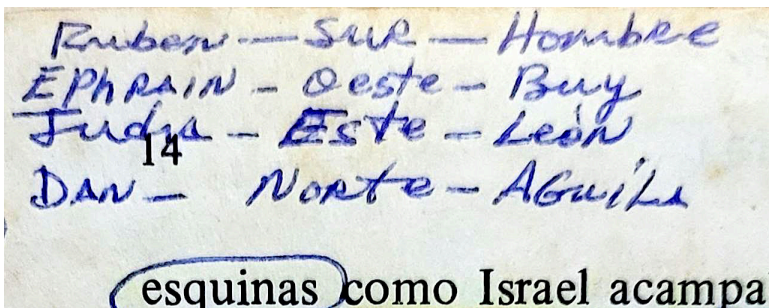 Ruben — SUR — Hombre
EPhRAIN - Oeste - Buy
Judá - Este - León
14
DAN — NORte - AGuiLA
esquinas como Israel acampa